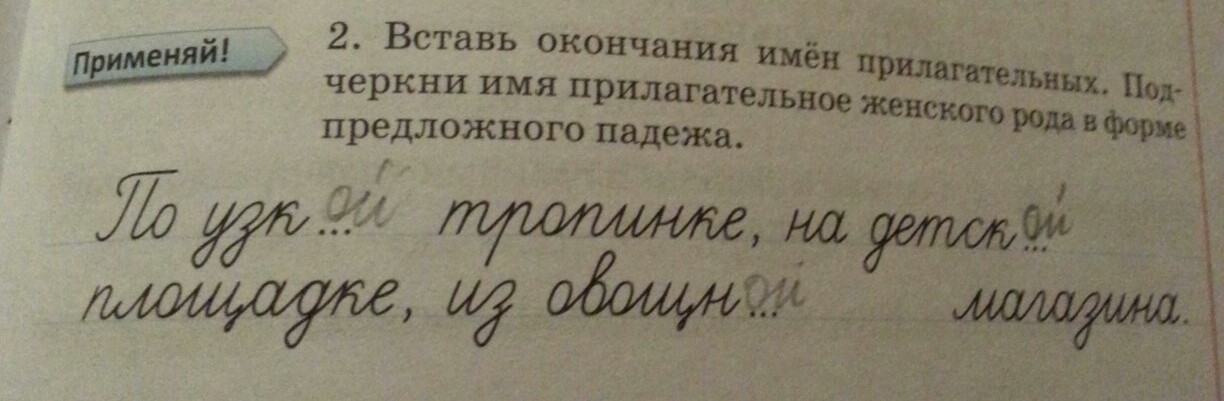 Применяй!
2. Вставь окончания имён прилагательных. Под-
черкни имя прилагательное женского рода в форме
предложного падежа.
По узк...ой тропинке, на детск...ой
площадке, из овощн...ой магазина.